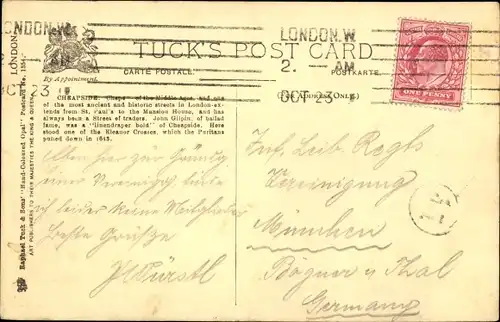 LONDON.W.
LONDON.W
2. - AM
OCT 23
OCT 23
TUCK'S POST CARD
By Appointment.
CARTE POSTALE.
POSTKARTE.
ONE PENNY
CHEAPSIDE. Chepe of the Middle Ages, and one
of the most ancient and historic streets in London—ex-
tends from St. Paul's to the Mansion House, and has
always been a Street of traders. John Gilpin, of ballad
fame, was a "linendraper bold" of Cheapside. Here
stood one of the Eleanor Crosses, which the Puritans
pulled down in 1643.
Raphael Tuck & Sons' "Hand-Coloured Opal" Postcard No. 1354. LONDON
ART PUBLISHERS TO THEIR MAJESTIES THE KING & QUEEN.
Aber hier zur
einer Vereinigung
ich leider keine Mitglieder
beste Grüsse
Inf. Leib Regts
Vereinigung
München
Thal
Germany